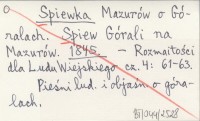 Śpiewka Mazurów o Gó-
ralach. Śpiew Górali na
Mazurów. 1845. - Rozmaitości
dla Ludu Wiejskiego cz. 4: 61-63.
Pieśni lud. i objaśn. o góra-
lach.